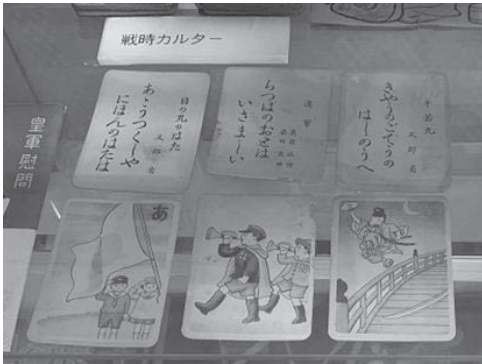 戦時カルター
皇軍慰問
日の丸のはた
文部省
あゝうつくしや
にほんのはたは
進軍
らつぱのおとは
いさましい
牛若丸
文部省
きやうのごでうの
はしのうへ
あ